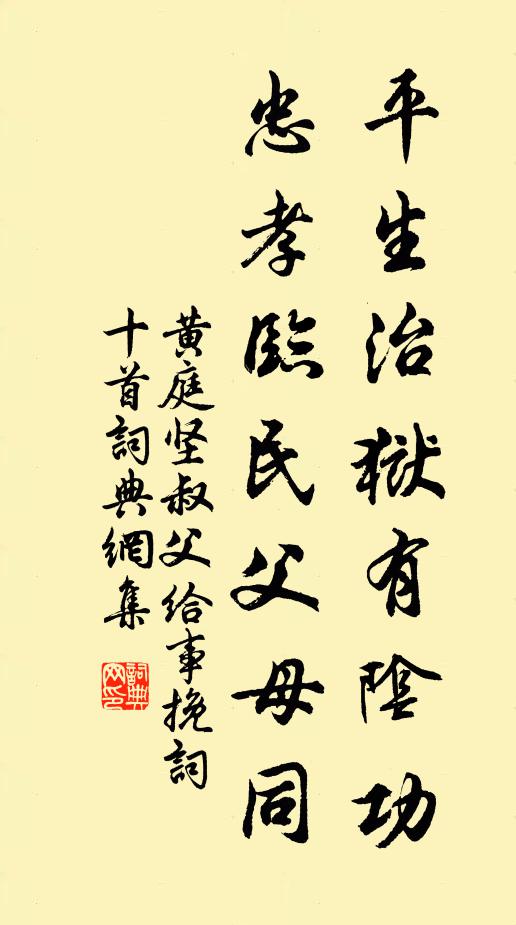 平生治獄有陰功
忠孝臨民父母同
黄庭坚叔父给事挽詞
十首詞典網集
詞典
网印